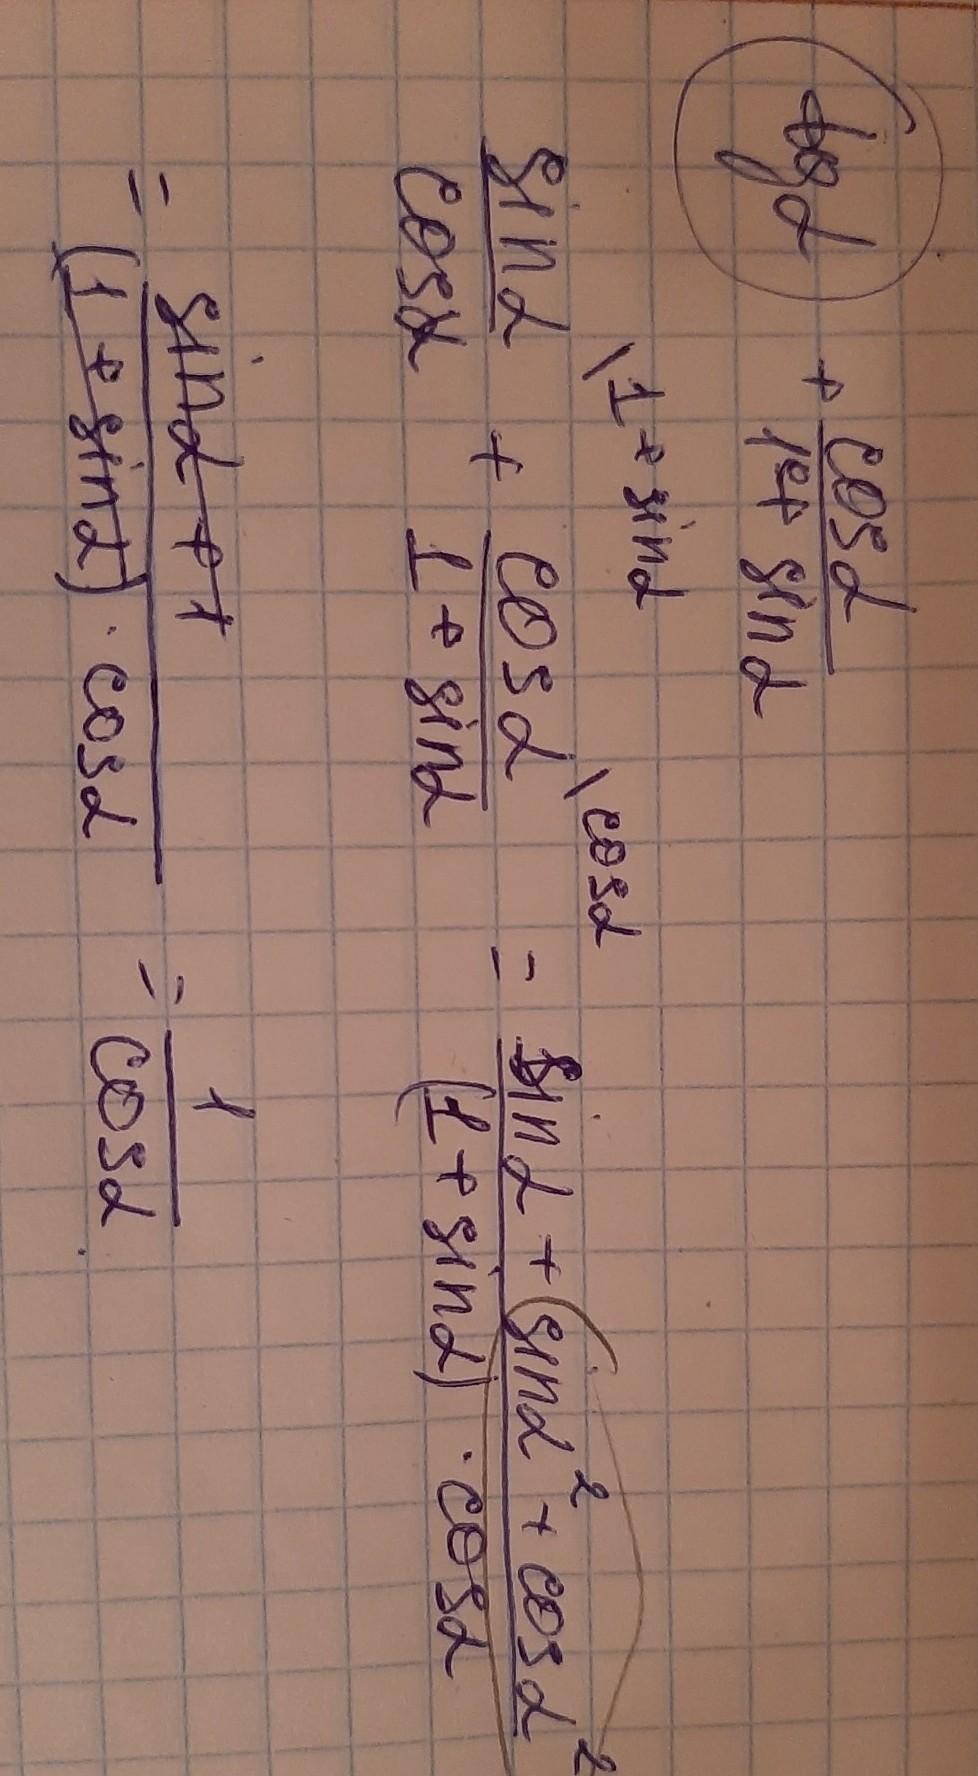 tg α + cos α / 1 + sin α
sin α / cos α \1 + sin α + cos α / 1 + sin α \cos α = sin α + sin α² + cos α² / (1 + sin α) · cos α
= sin α + 1 / (1 + sin α) · cos α = 1 / cos α